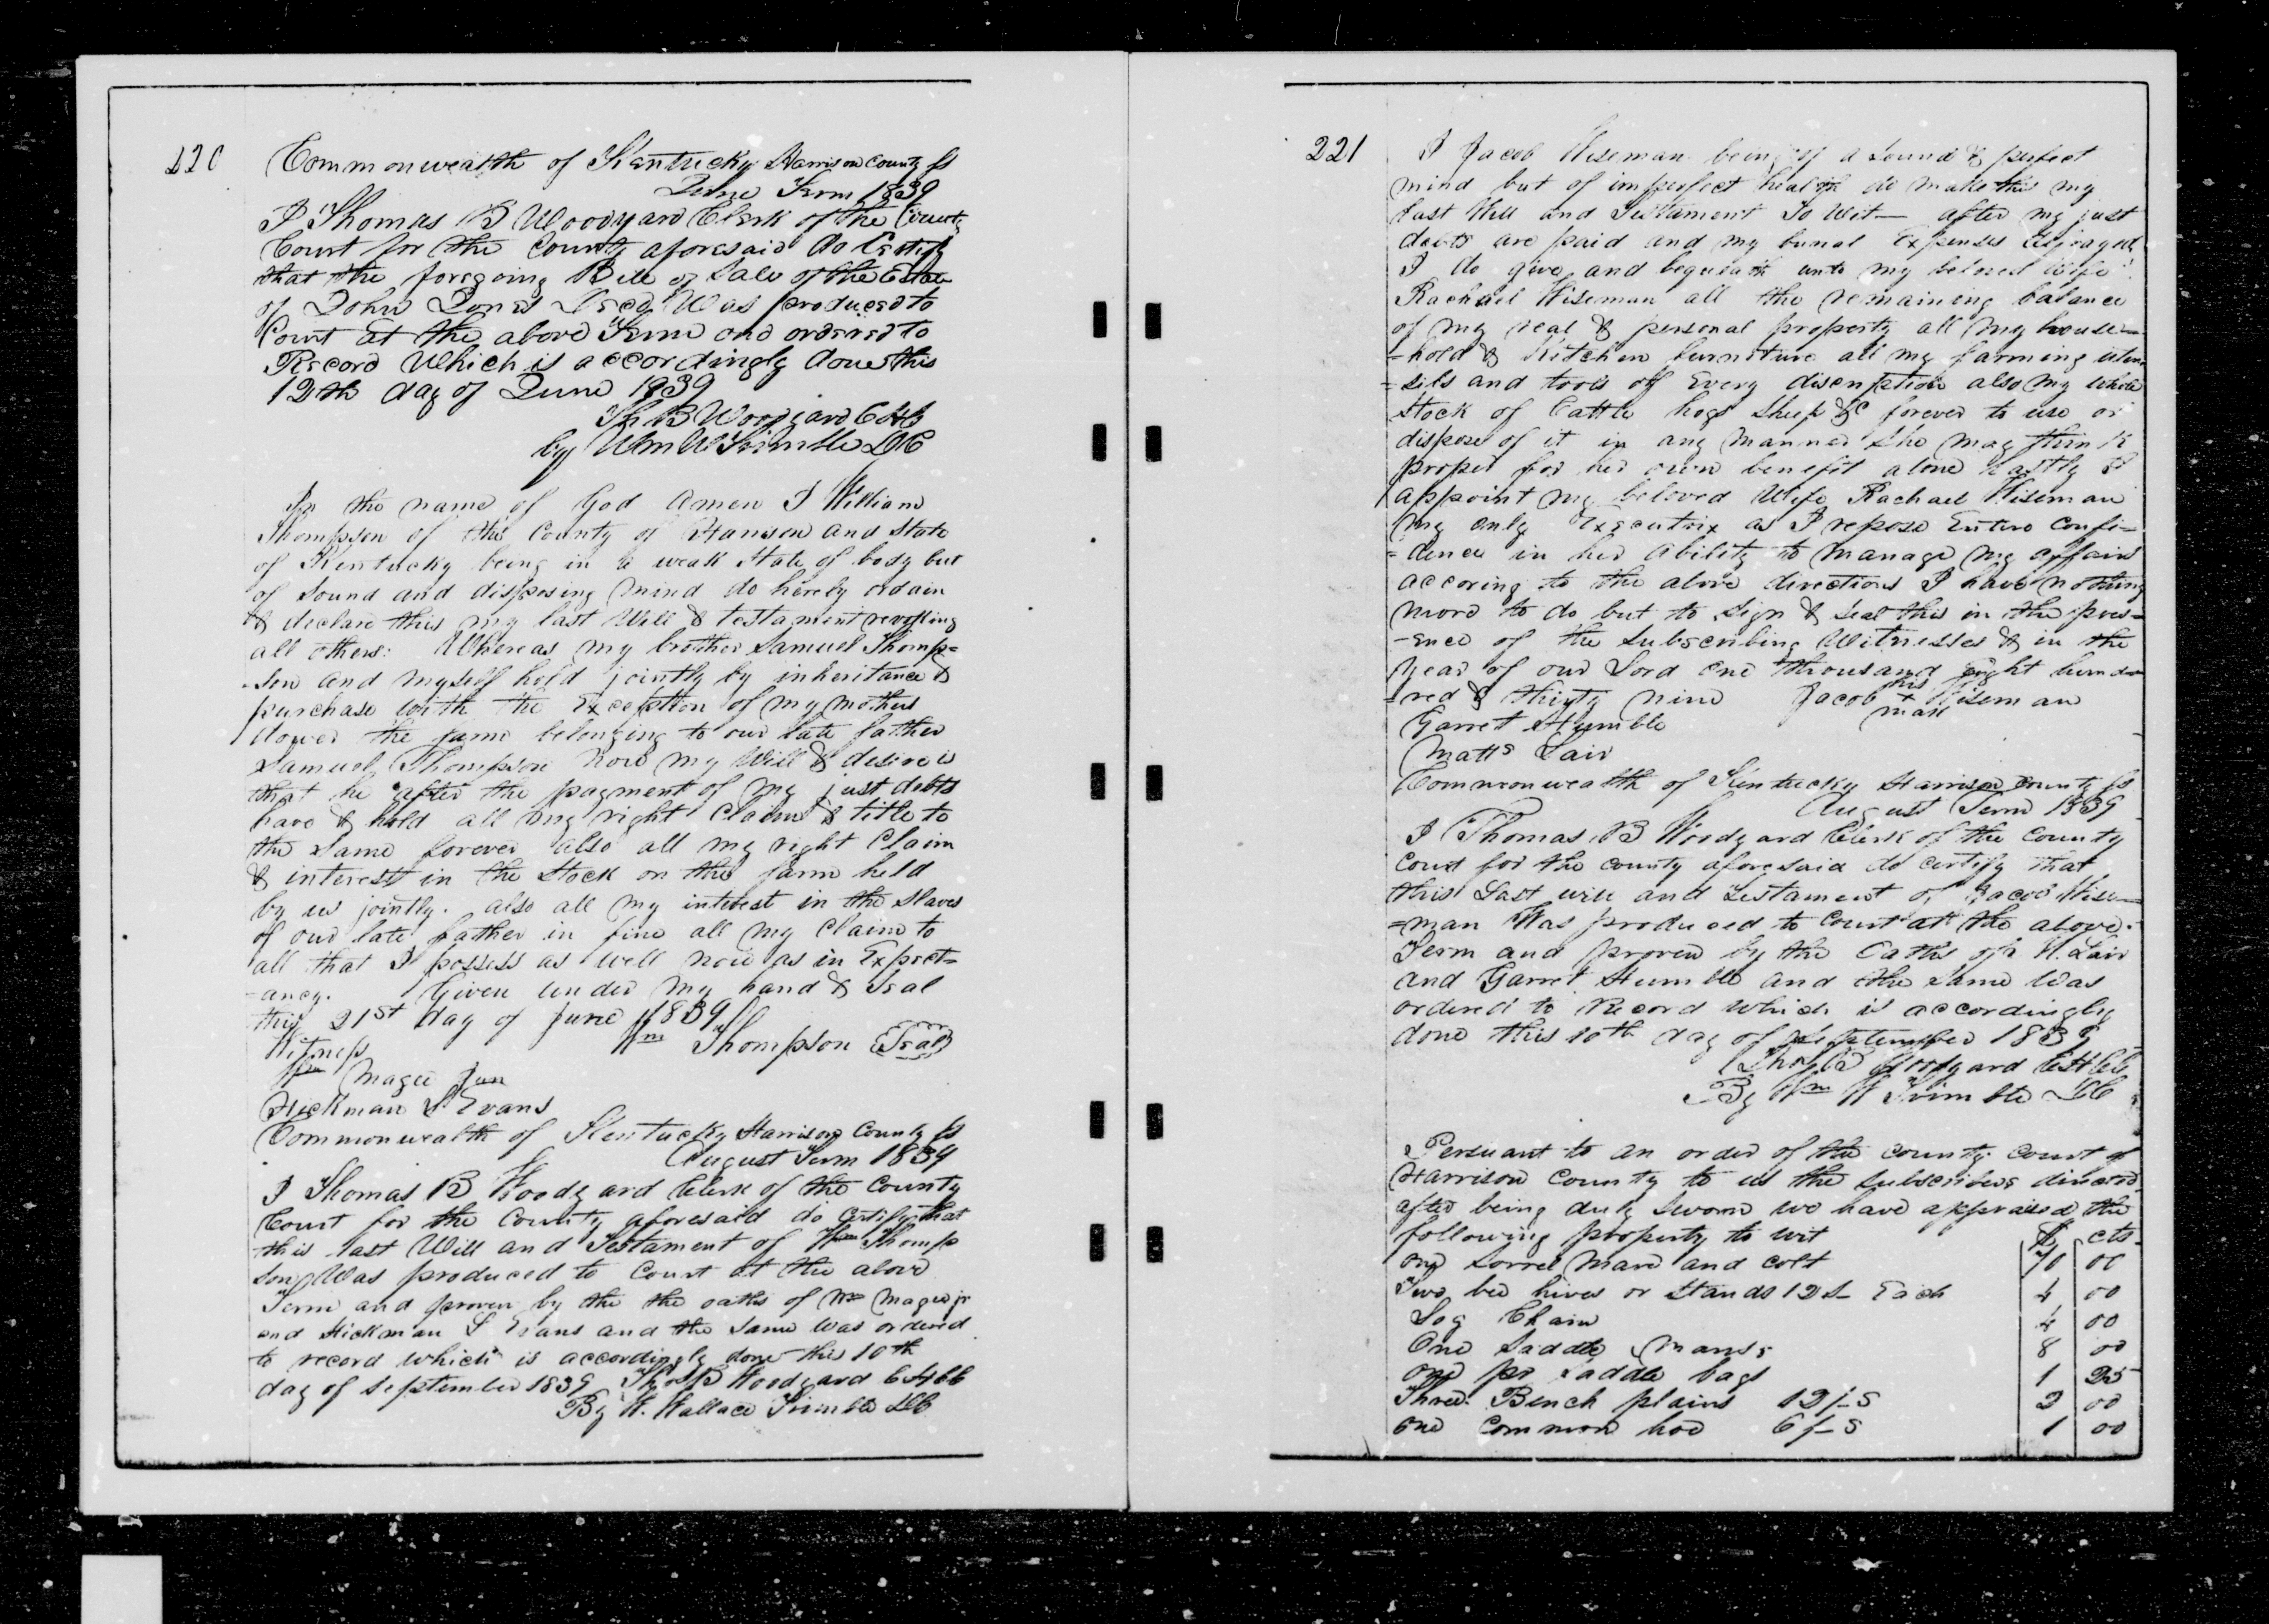 220
Commonwealth of Kentucky Harrison County ss
June Term 1839
I Thomas B Woodyard Clerk of the County
Court for the County aforesaid do Certify
that the foregoing Bill of Sale of the Estate
of John Jones Decd Was produced to
Court at the above Term and ordered to
Record Which is accordingly done this
12th day of June 1839
Th. B Woodyard C H C
by Wm W Trimble DC
In the name of God Amen I William
Thompson of the County of Harrison and State
of Kentucky being in a weak State of body but
of Sound and disposing mind do hereby ordain
& declare this my last Will & testament revoking
all others: Whereas my brother Samuel Thomp=
-son and myself hold jointly by inheritance &
purchase with the Exception of my mothers
dower the farm belonging to our late father
Samuel Thompson Now my Will & desire is
that he after the payment of my just debts
have & hold all my right Claim & title to
the Same forever also all my right Claim
& interest in the Stock on the farm held
by us jointly. also all my interest in the Slaves
of our late father in fine all my Claim to
all that I possess as well now as in Expect=
-ancy. Given under my hand & Seal
this 21st day of June 1839
Wm Thompson Seal
Witness
Wm Magee Jun
Hickman S Evans
Commonwealth of Kentucky Harrison County ss
August Term 1839
I Thomas B Woodyard Clerk of the County
Court for the County aforesaid do certify that
this last Will and Testament of Wm Thomp
son Was produced to Court at the above
Term and proven by the the oaths of Wm Magee jr
and Hickman S Evans and the Same was ordered
to record which is accordingly done this 10th
day of September 1839 Thos B Woodyard C H CC
By W. Wallace Trimble DC
221
I Jacob Wiseman being of a Sound & perfect
mind but of imperfect health do make this my
Last Will and Testament To Wit— after my just
debts are paid and my burial Expenses defrayed
I do give and bequeath unto my beloved Wife
Rachael Wiseman all the remaining balance
of my real & personal property all my house=
=hold & Kitchen furniture all my farming uten
=sils and tools of Every description also my whole
Stock of Cattle hogs Sheep &C forever to use or
dispose of it in any manner She may think
proper for her own benefit alone Lastly I
appoint my beloved Wife Rachael Wiseman
my only Executrix as I repose Entire Confi=
=dence in her Ability to manage my affairs
accoring to the above directions I have nothing
more to do but to Sign & Seal this in the pres=
-ence of the Subscribing Witnesses & in the
year of our Lord one thousand Eight hund
=red & thirty nine Jacob his x mark Wiseman
Garret Humble
Matts Lair
Commonwealth of Kentucky Harrison County ss
August Term 1839
I Thomas B Woodyard Clerk of the County
Court for the county aforesaid do certify that
this Last will and Testament of Jacob Wise=
=man Was produced to Court at the above
Term and proven by the Oaths of M. Lair
and Garret Humble and the Same Was
ordered to Record which is accordingly
done this 10th day of September 1839
Thos B Woodyard C H CC
By Wm W Trimble DC
Persuant to an order of the county court of
Harrison County to us the Subscribers directed
after being duly Sworn we have appraised the
following property to wit $ cts
one Sorrel Mare and colt 70 00
Two bee hives or Stands 12s Each 4 00
Log Chain 4 00
One Saddle Mans 8 00
one pr Saddle bags 1 25
Three Bench plains 12/-s 2 00
one common hoe 6/-s 1 00